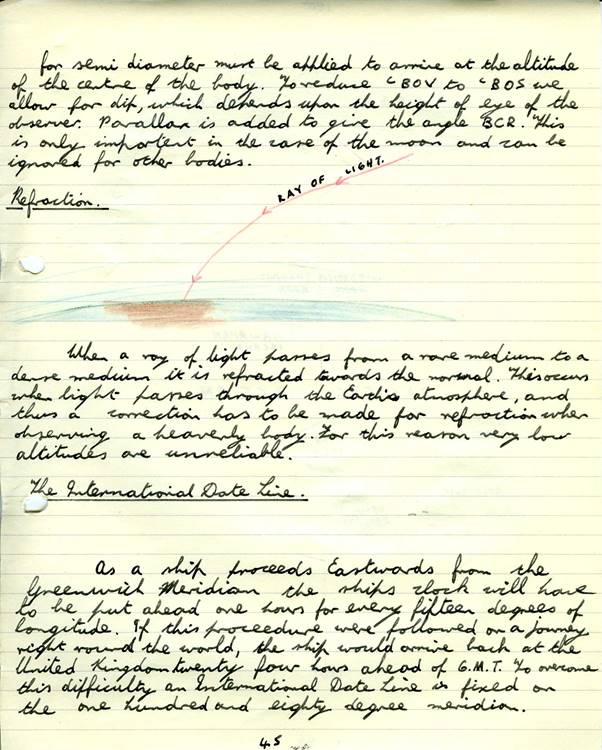 for semi diameter must be applied to arrive at the altitude
of the centre of the body. To reduce ∠BOV to ∠BOS we
allow for dip, which depends upon the height of eye of the
observer. Parallax is added to give the angle BCR. This
is only important in the case of the moon and can be
ignored for other bodies.
Refraction.
RAY OF LIGHT.
When a ray of light passes from a rare medium to a
dense medium it is refracted towards the normal. This occurs
when light passes through the Earth's atmosphere, and
thus a correction has to be made for refraction when
observing a heavenly body. For this reason very low
altitudes are unreliable.
The International Date Line.
As a ship proceeds Eastwards from the
Greenwich Meridian the ships clock will have
to be put ahead one hours for every fifteen degrees of
longitude. If this proceedure were followed on a journey
right round the world, the ship would arrive back at the
United Kingdom twenty four hours ahead of G.M.T. To overcome
this difficulty an International Date Line is fixed on
the one hundred and eighty degree meridian.
45